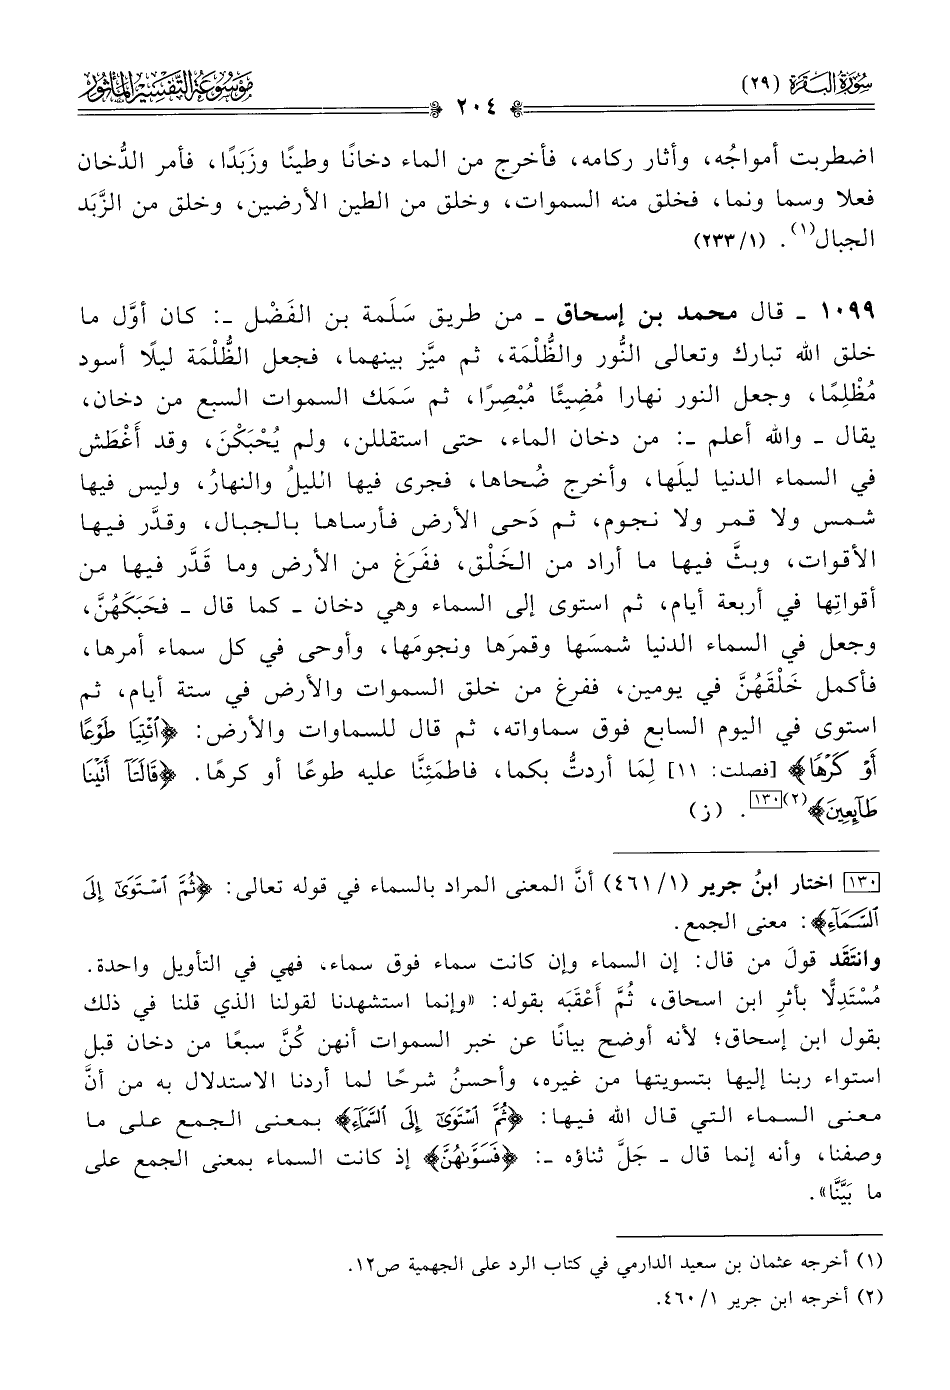 سُورَةُ البَقَرَة (٢٩)
٢٠٤
مَوْسُوعَة التَّفْسِيرِ المأثُور
اضطربت أمواجُه، وأثار ركامه، فأخرج من الماء دخانًا وطينًا وزبَدًا، فأمر الدُّخان
فعلا وسما ونما، فخلق منه السموات، وخلق من الطين الأرضين، وخلق من الزَّبَد
الجبال(١). (١/ ٢٣٣)
١٠٩٩ ـ قال محمد بن إسحاق ـ من طريق سَلَمة بن الفَضْل ـ: كان أوَّل ما
خلق الله تبارك وتعالى النُّور والظُّلْمَة، ثم ميَّز بينهما، فجعل الظُّلْمَة ليلًا أسود
مُظْلِمًا، وجعل النور نهارا مُضِيئًا مُبْصِرًا، ثم سَمَك السموات السبع من دخان،
يقال ـ والله أعلم ـ: من دخان الماء، حتى استقللن، ولم يُحْبَكْنَ، وقد أَغْطَش
في السماء الدنيا ليلَها، وأخرج ضُحاها، فجرى فيها الليلُ والنهارُ، وليس فيها
شمس ولا قمر ولا نجوم، ثم دَحى الأرض فأرساها بالجبال، وقدَّر فيها
الأقوات، وبثَّ فيها ما أراد من الخَلْق، ففَرَغ من الأرض وما قَدَّر فيها من
أقواتِها في أربعة أيام، ثم استوى إلى السماء وهي دخان ـ كما قال ـ فحَبَكَهُنَّ،
وجعل في السماء الدنيا شمسَها وقمرَها ونجومَها، وأوحى في كل سماء أمرها،
فأكمل خَلْقَهُنَّ في يومين، ففرغ من خلق السموات والأرض في ستة أيام، ثم
استوى في اليوم السابع فوق سماواته، ثم قال للسماوات والأرض: ﴿ٱئْتِيَا طَوْعًا
أَوْ كَرْهًا﴾ [فصلت: ١١] لِمَا أردتُّ بكما، فاطمَئِنَّا عليه طوعًا أو كرهًا. ﴿قَالَتَآ أَتَيْنَا
طَآئِعِينَ﴾(٢)[١٣٠]. (ز)
[١٣٠] اختار ابنُ جرير (١/ ٤٦١) أنَّ المعنى المراد بالسماء في قوله تعالى: ﴿ثُمَّ ٱسْتَوَىٰٓ إِلَى
ٱلسَّمَآءِ﴾: معنى الجمع.
وانتَقَد قولَ من قال: إن السماء وإن كانت سماء فوق سماء، فهي في التأويل واحدة.
مُسْتَدِلًّا بأثرِ ابن اسحاق، ثُمَّ أَعْقَبَه بقوله: «وإنما استشهدنا لقولنا الذي قلنا في ذلك
بقول ابن إسحاق؛ لأنه أوضح بيانًا عن خبر السموات أنهن كُنَّ سبعًا من دخان قبل
استواء ربنا إليها بتسويتها من غيره، وأحسنُ شرحًا لما أردنا الاستدلال به من أنَّ
معنى السماء التي قال الله فيها: ﴿ثُمَّ ٱسْتَوَىٰٓ إِلَى ٱلسَّمَآءِ﴾ بمعنى الجمع على ما
وصفنا، وأنه إنما قال ـ جَلَّ ثناؤه ـ: ﴿فَسَوَّىٰهُنَّ﴾ إذ كانت السماء بمعنى الجمع على
ما بَيَّنَّا».
(١) أخرجه عثمان بن سعيد الدارمي في كتاب الرد على الجهمية ص١٢.
(٢) أخرجه ابن جرير ١/ ٤٦٠.